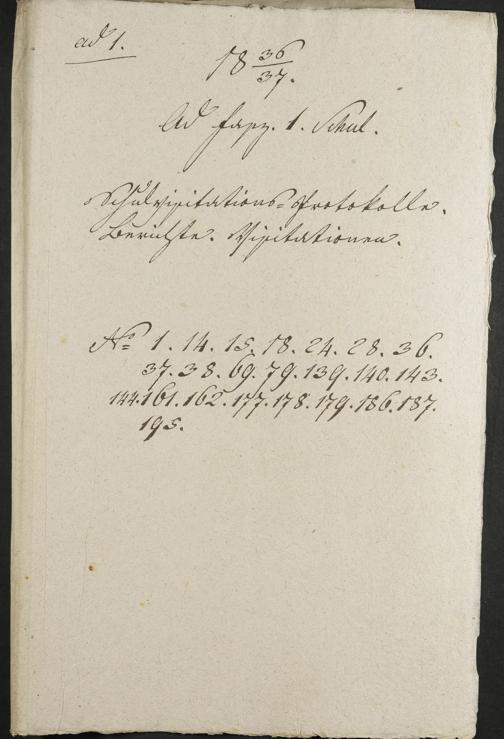 ad 1.
18 36/37.
Ad fasz. 1. Schul.
Schulvisitations-Protokolle.
Berichte. Visitationen.
No 1. 14. 15. 18. 24. 28. 36.
37. 38. 69. 79. 139. 140. 143.
144. 161. 162. 177. 178. 179. 186. 187.
195.